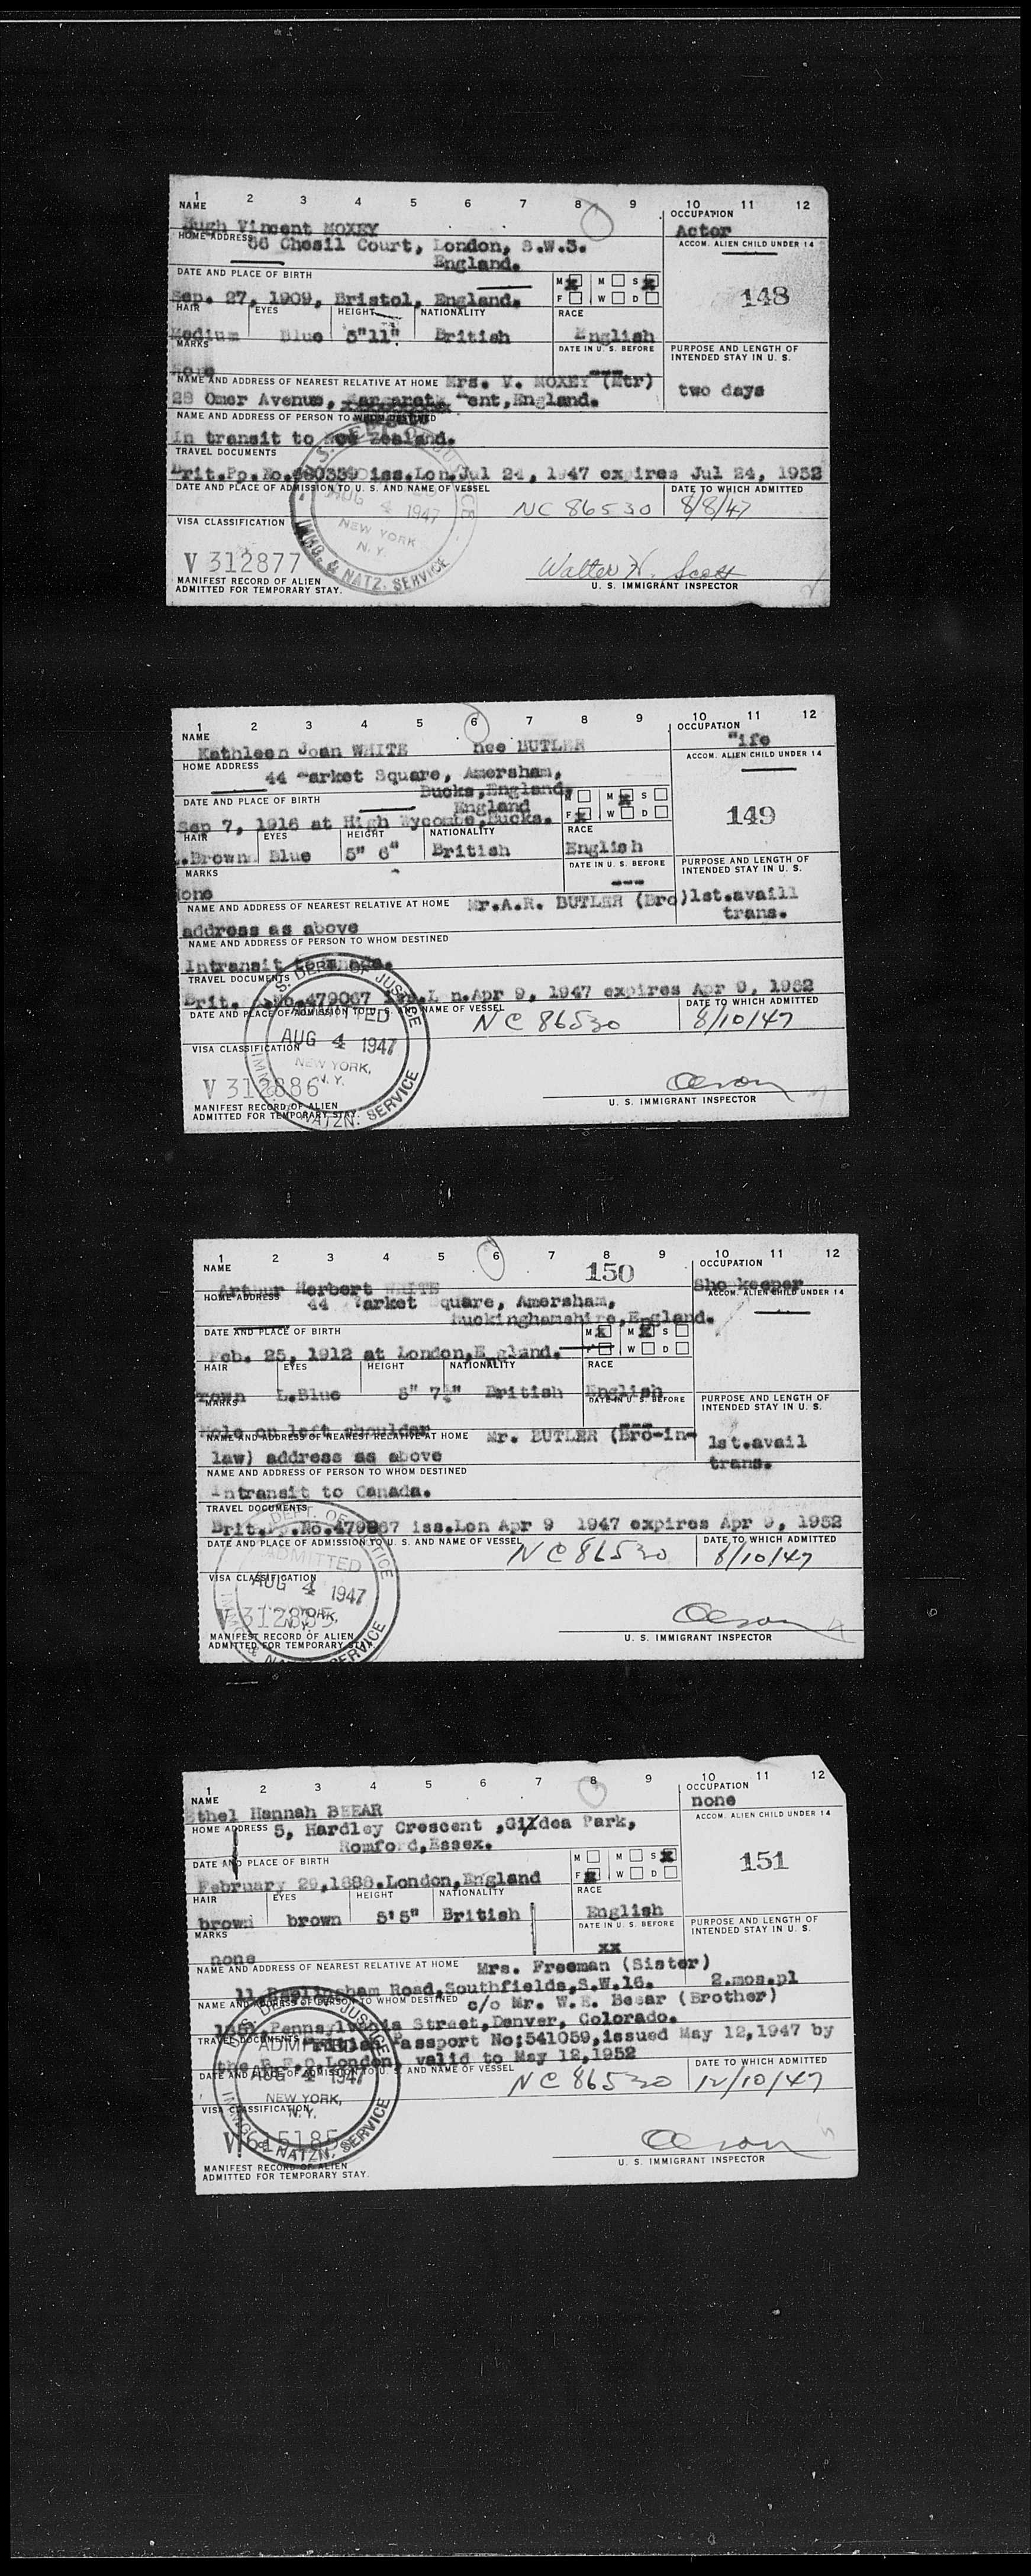 1 2 3 4 5 6 7 8 9 10 11 12
NAME OCCUPATION
Hugh Vincent MOXEY Actor
HOME ADDRESS ACCOM. ALIEN CHILD UNDER 14
Chesil Court, London, S.W.3.
England.
DATE AND PLACE OF BIRTH M M S
148
Sep. 27, 1909, Bristol, England. F W D
HAIR EYES HEIGHT NATIONALITY RACE
Medium Blue 5"11" British English
MARKS DATE IN U. S. BEFORE PURPOSE AND LENGTH OF
INTENDED STAY IN U. S.
NAME AND ADDRESS OF NEAREST RELATIVE AT HOME Mrs. V. MOXEY
two days
28 Omer Avenue, England.
NAME AND ADDRESS OF PERSON TO WHOM DESTINED
In transit to New Zealand.
TRAVEL DOCUMENTS
Brit.Pp.No. iss.Lon.Jul 24, 1947 expires Jul 24, 1952
DATE AND PLACE OF ADMISSION TO U. S. AND NAME OF VESSEL DATE TO WHICH ADMITTED
NC 86530 8/8/47
AUG 4 1947
NEW YORK
N. Y.
IMMG. & NATZ. SERVICE
VISA CLASSIFICATION
V 312877
Walter H. Scott
MANIFEST RECORD OF ALIEN
ADMITTED FOR TEMPORARY STAY.
U. S. IMMIGRANT INSPECTOR
1 2 3 4 5 6 7 8 9 10 11 12
NAME OCCUPATION
Kathleen Joan WHITE nee BUTLER "ife
HOME ADDRESS ACCOM. ALIEN CHILD UNDER 14
44 Market Square, Amersham,
Bucks,England,
DATE AND PLACE OF BIRTH England M M S
149
Sep 7, 1916 at High Wycombe,Bucks. F W D
HAIR EYES HEIGHT NATIONALITY RACE
.Brown Blue 5" 6" British English
MARKS DATE IN U. S. BEFORE PURPOSE AND LENGTH OF
INTENDED STAY IN U. S.
one ---
NAME AND ADDRESS OF NEAREST RELATIVE AT HOME Mr.A.R. BUTLER (Bro) 1st.availl
trans.
address as above
NAME AND ADDRESS OF PERSON TO WHOM DESTINED
Intransit to
TRAVEL DOCUMENTS
Brit. No.479067 iss.L n.Apr 9, 1947 expires Apr 9, 1952
DATE AND PLACE OF ADMISSION TO U. S. AND NAME OF VESSEL DATE TO WHICH ADMITTED
NC 86530 8/10/47
U.S. DEPT. OF JUSTICE
ADMITTED
AUG 4 1947
NEW YORK,
N. Y.
IMMG. & NATZN. SERVICE
VISA CLASSIFICATION
V 312886
Olson
MANIFEST RECORD OF ALIEN
ADMITTED FOR TEMPORARY STAY.
U. S. IMMIGRANT INSPECTOR
1 2 3 4 5 6 7 8 9 10 11 12
NAME 150 OCCUPATION
Arthur Herbert WHITE Sho keeper
HOME ADDRESS ACCOM. ALIEN CHILD UNDER 14
44 Market Square, Amersham,
Buckinghamshire,England.
DATE AND PLACE OF BIRTH M M S
Feb. 25, 1912 at London,E gland. F W D
HAIR EYES HEIGHT NATIONALITY RACE
rown L.Blue 5" 7½" British English
MARKS DATE IN U. S. BEFORE PURPOSE AND LENGTH OF
INTENDED STAY IN U. S.
Mole on left shoulder ---
NAME AND ADDRESS OF NEAREST RELATIVE AT HOME Mr. BUTLER (Bro-in- 1st.avail
law) address as above trans.
NAME AND ADDRESS OF PERSON TO WHOM DESTINED
Intransit to Canada.
TRAVEL DOCUMENTS
Brit.Pp.No.479067 iss.Lon Apr 9 1947 expires Apr 9, 1952
DATE AND PLACE OF ADMISSION TO U. S. AND NAME OF VESSEL DATE TO WHICH ADMITTED
NC 86530 8/10/47
DEPT. OF JUSTICE
ADMITTED
AUG 4 1947
YORK,
N. Y.
VISA CLASSIFICATION
V 312885
Olson
MANIFEST RECORD OF ALIEN
ADMITTED FOR TEMPORARY STAY
U. S. IMMIGRANT INSPECTOR
1 2 3 4 5 6 7 8 9 10 11 12
NAME OCCUPATION
Ethel Hannah BEEAR none
HOME ADDRESS 5, Hardley Crescent ,Gidea Park, ACCOM. ALIEN CHILD UNDER 14
Romford,Essex.
DATE AND PLACE OF BIRTH M M S
151
February 29,1888.London,England F W D
HAIR EYES HEIGHT NATIONALITY RACE
brown brown 5'5" British English
MARKS DATE IN U. S. BEFORE PURPOSE AND LENGTH OF
INTENDED STAY IN U. S.
none xx
NAME AND ADDRESS OF NEAREST RELATIVE AT HOME Mrs. Freeman (Sister)
Road,Southfields,S.W.16. 2.mos.pl
NAME AND ADDRESS OF PERSON TO WHOM DESTINED c/o Mr. W.E. Besar (Brother)
Pennsylvania Street,Denver, Colorado.
TRAVEL DOCUMENTS British Passport No:541059,issued May 12,1947 by
the London, valid to May 12,1952
DATE AND PLACE OF ADMISSION TO U. S. AND NAME OF VESSEL DATE TO WHICH ADMITTED
NC 86530 12/10/47
U.S. DEPT. OF JUSTICE
ADMITTED
AUG 4 1947
NEW YORK,
N. Y.
IMMIG. & NATZN. SERVICE
VISA CLASSIFICATION
V 615185
Olson
MANIFEST RECORD OF ALIEN
ADMITTED FOR TEMPORARY STAY.
U. S. IMMIGRANT INSPECTOR